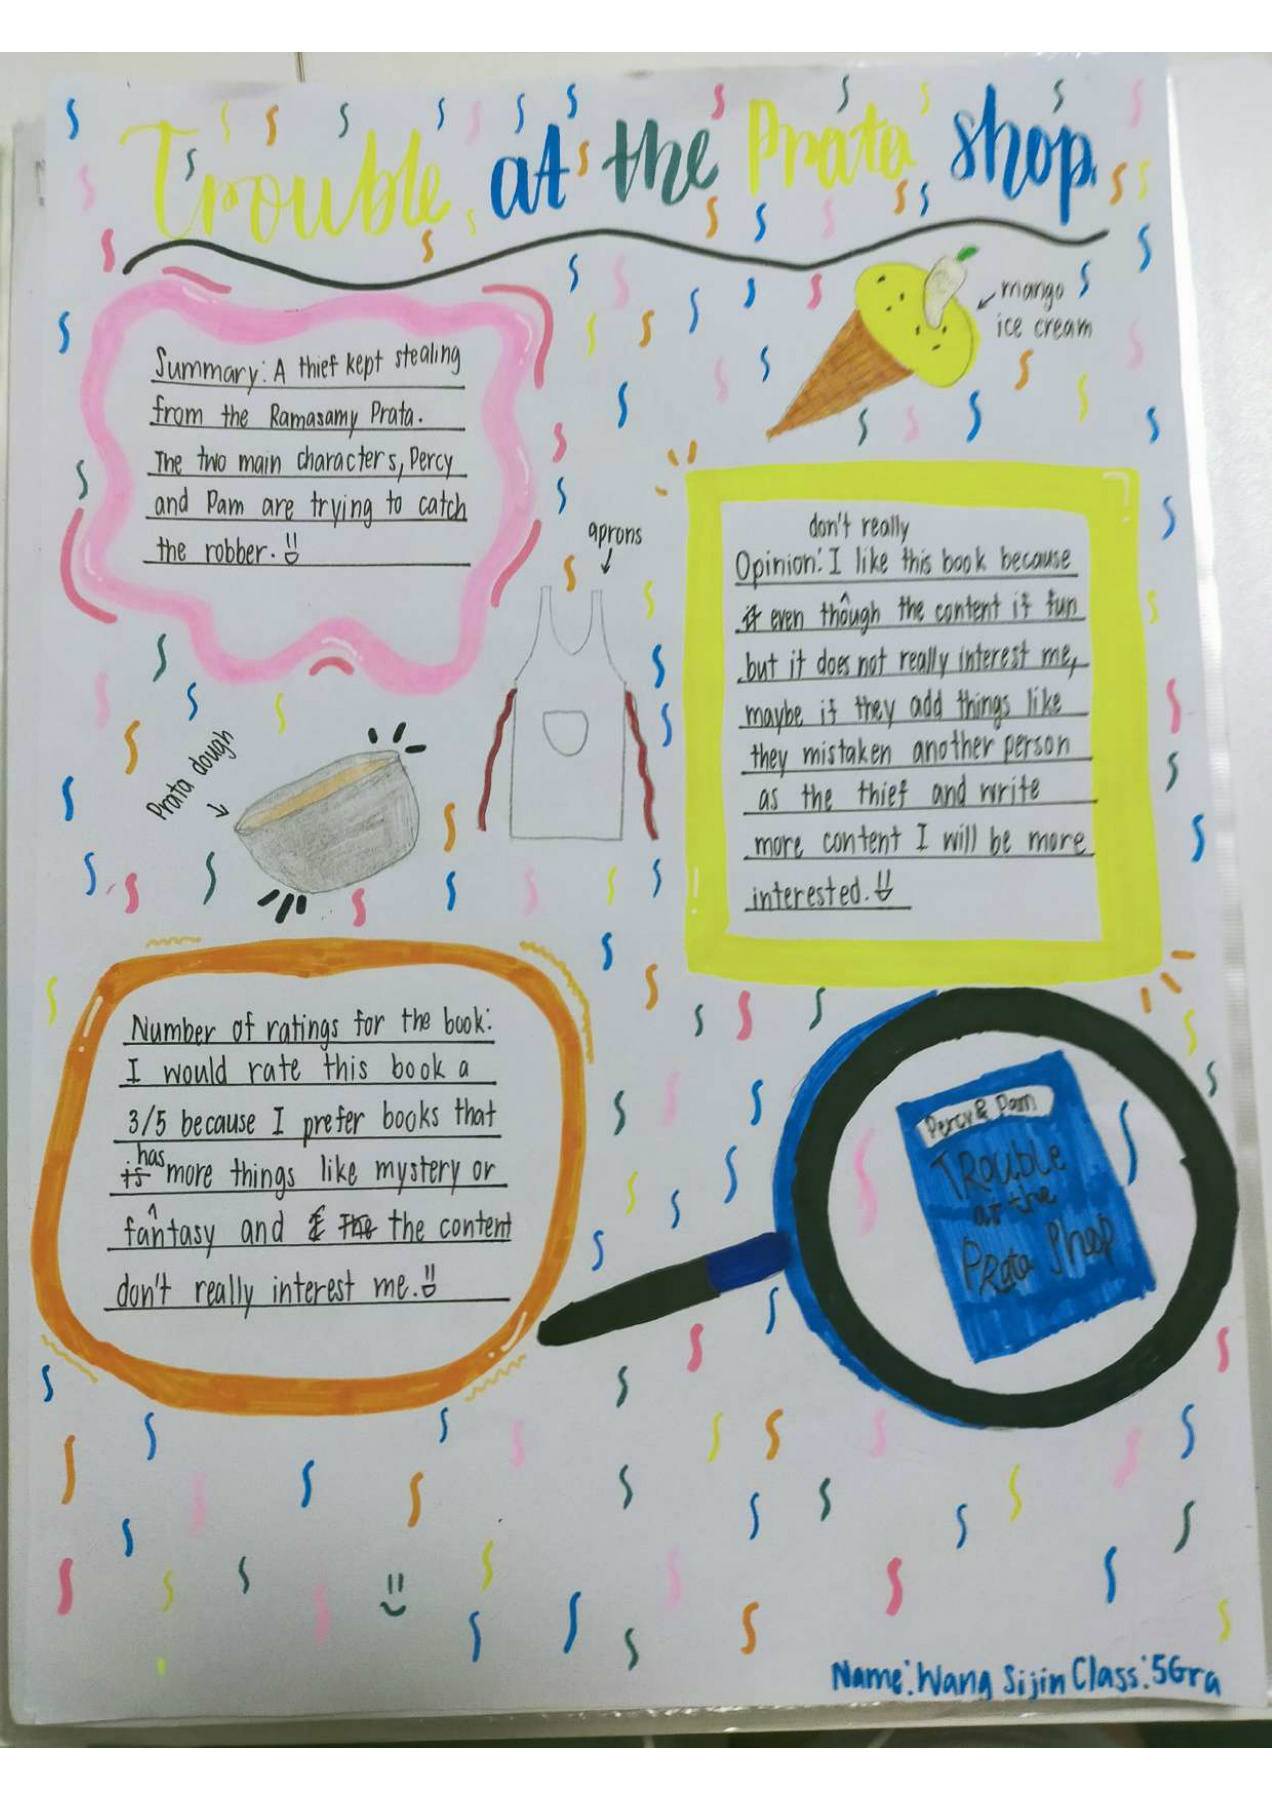 Trouble at the Prata shop
Summary: A thief kept stealing
from the Ramasamy Prata.
The two main characters, Percy
and Pam are trying to catch
the robber.
mango
ice cream
aprons
don't really
Opinion: I like this book because
it even though the content if fun
but it does not really interest me,
maybe if they add things like
they mistaken another person
as the thief and write
more content I will be more
interested.
Prata dough
Number of ratings for the book:
I would rate this book a
3/5 because I prefer books that
has
is more things like mystery or
fantasy and I The the content
don't really interest me.
Percy & Pam
TRouBLe
at the
PRata Shop
Name: Wang Sijin Class: 5Gra